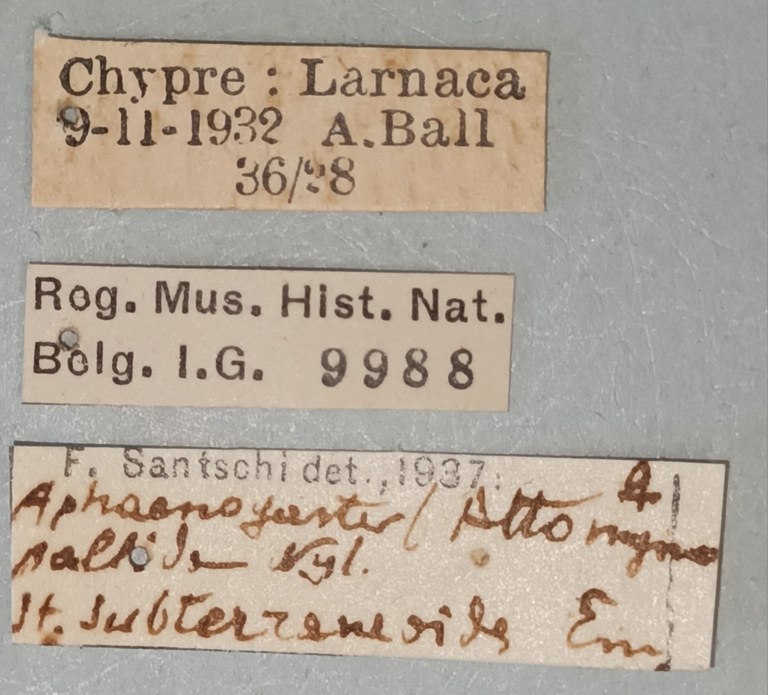 Chypre : Larnaca
9-11-1932 A. Ball
36/28
Rog. Mus. Hist. Nat.
Belg. I.G. 9988
F. Santschi det., 1937.
Aphaenogaster (Attomyma
pallida Nyl.
st. subterraneoides Em